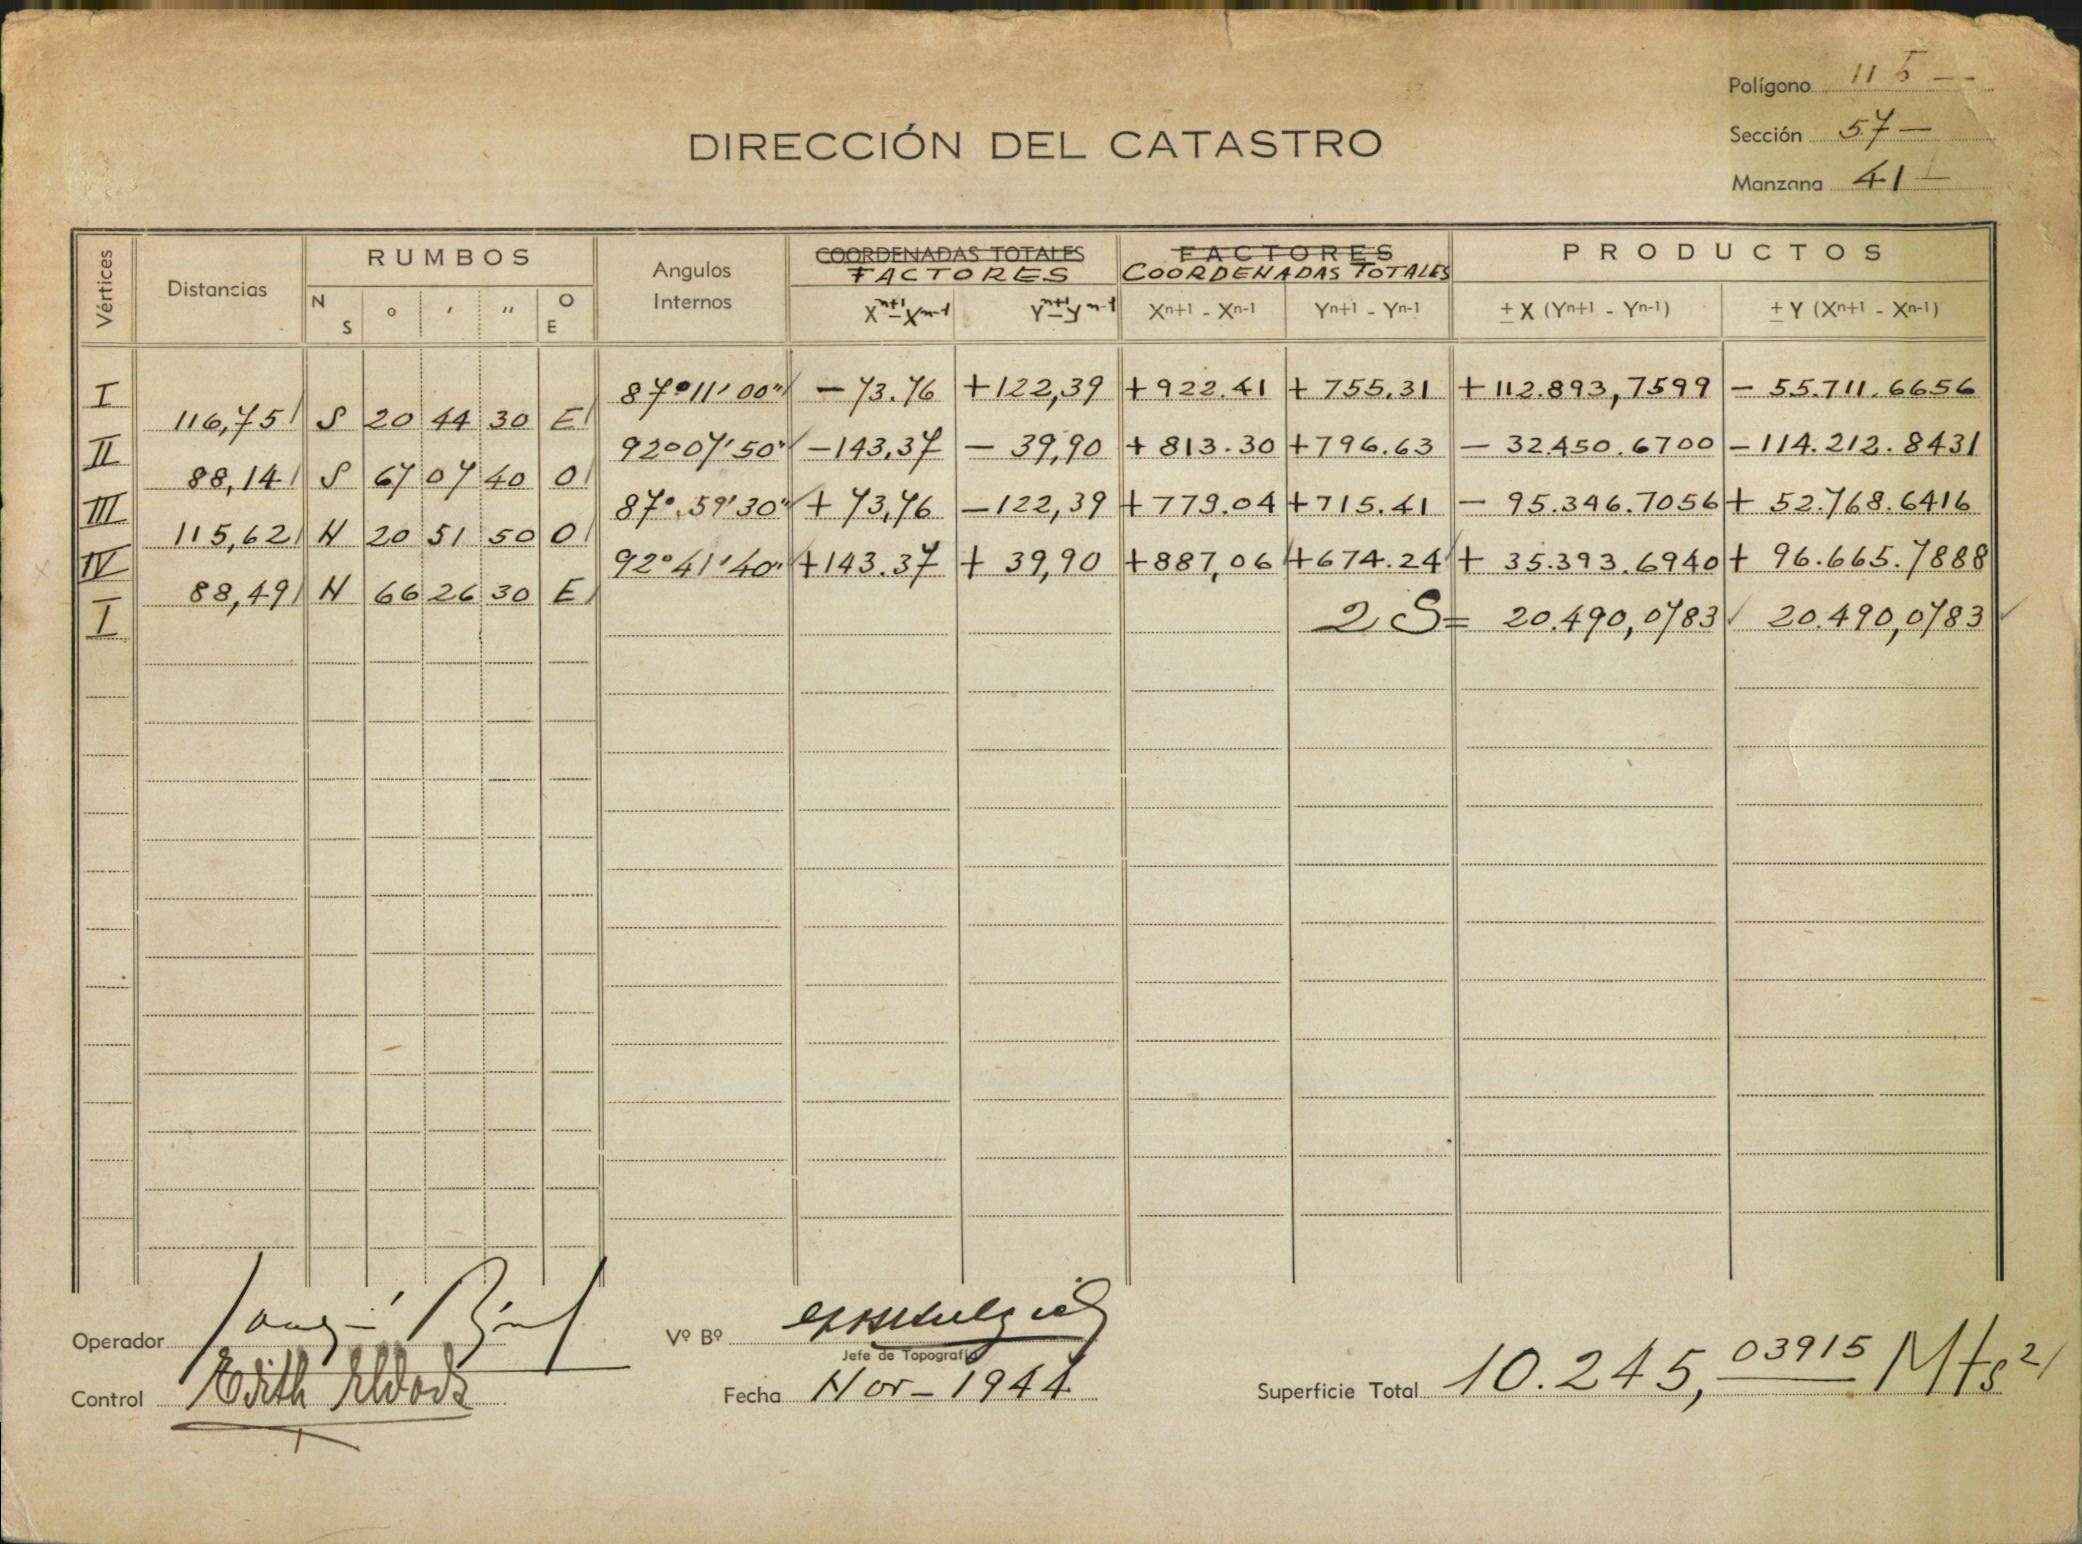 Polígono 115 --
Sección 57 —
Manzana 41 —
DIRECCIÓN DEL CATASTRO
Vértices Distancias RUMBOS Angulos Internos COORDENADAS TOTALES FACTORES PRODUCTOS
FACTORES COORDENADAS TOTALES
N S ° ' " O E Xn+1 - Xn-1 Yn+1 - Yn-1 Xn+1 - Xn-1 Yn+1 - Yn-1 ± X (Yn+1 - Yn-1) ± Y (Xn+1 - Xn-1)
I 87°11'00" - 73.76 +122,39 +922.41 + 755.31 +112.893,7599 - 55.711.6656
116,75 S 20 44 30 E
II 92°07'50" -143,37 - 39,90 + 813.30 +796.63 - 32.450.6700 -114.212.8431
88,14 S 67 07 40 O
III 87°.59'30" + 73,76 -122,39 +779.04 +715.41 - 95.346.7056 + 52.768.6416
115,62 N 20 51 50 O
IV 92°41'40" +143.37 + 39,90 +887,06 +674.24 + 35.393.6940 + 96.665.7888
88,49 N 66 26 30 E
I 2 S = 20.490,0783 20.490,0783
Operador
Vº Bº
Jefe de Topografía
Control Edith
Fecha Nov - 1944
Superficie Total 10.245,03915 Mts2